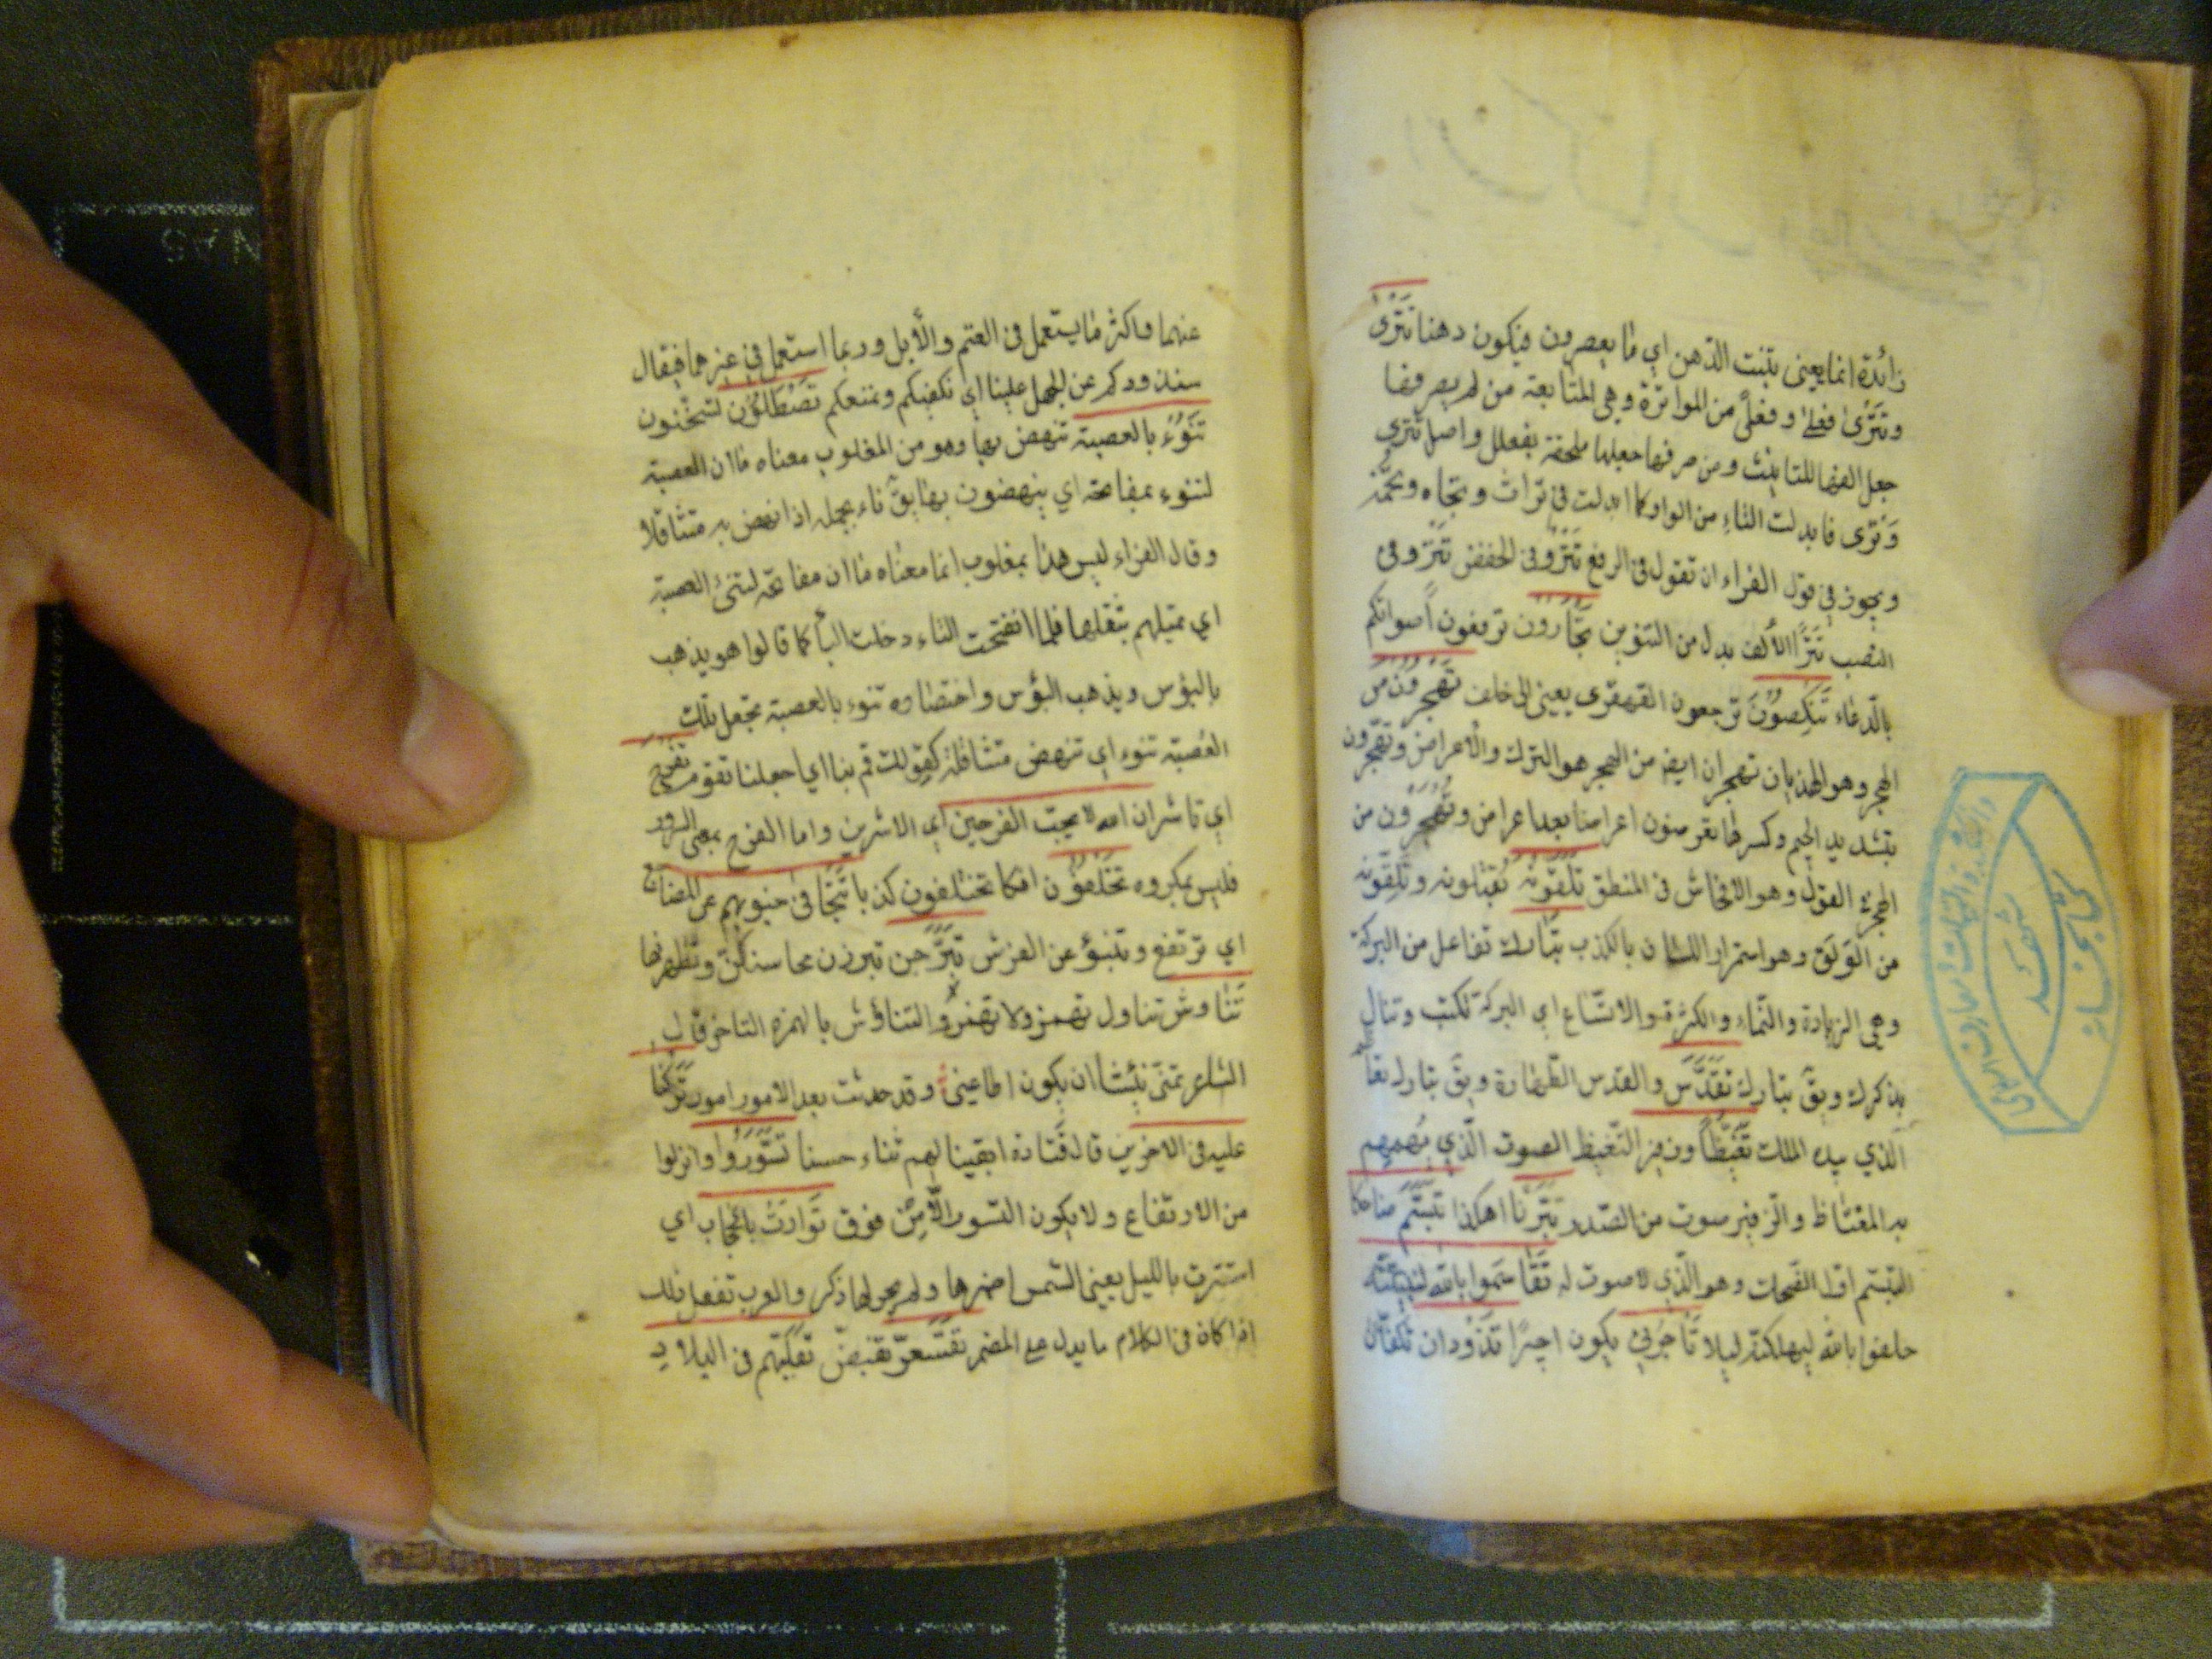 زائدة انما يعنى تنبت الدهن اي ما يعصرون فيكون دهنا تَتْرَىٰ
وتترًى فعلى وفعلًى من المواترة وهي المتابعة من لم يصرفها
جعل الفها للتانيث ومن صرفها جعلها ملحقة بفعلل واصل تترى
وَتْرى فابدلت التاء من الواو كما ابدلت في تراث وتجاه
ويجوز في قول الفراء ان تقول في الرفع تترٌ وفي الخفض تترٍ وفي
النصب تترًا الألف بدل من التنوين تجأرون ترفعون أصواتكم
بالدعاء تَنْكِصُونَ ترجعون القهقرى يعنى الى خلف تَهْجُرُونَ من
الهجر وهو الهذيان تهجران ايضا من الهجر هو الترك والأعراض وتهجّرون
بتشديد الجيم وكسرها تعرضون اعراضا بعد اعراض وتُهْجِرُون من
الهجر القول وهو الافحاش في المنطق تَلَقَّوْنَهُ تقبلونه وتَلِقُونه
من الوَلَق وهو استمرار اللسان بالكذب تبارك تفاعل من البركة
وهي الزيادة والنماء والكثرة والاتساع اي البركة تكتسب وتنال
بذكرك ويق تبارك تقدّس والقدس الطهارة ويق تبارك تعا
الذي بيده الملك تَغَيُّظًا وزفيرا التغيظ الصوت الذي يهمهم
به المغتاظ والزفير صوت من الصدر تَبَّرْنَا اهلكنا تَبَسَّمَ ضاحكا
التبسم اول الضحك وهو الذي لا صوت له تَقَاسَمُوا بالله لنبيتنّه
حلفوا بالله ليهلكنه ليلا تأجُرُني يكون اجيرًا تذودان تكفّان
عنهما واكثر ما يستعمل في الغنم والأبل وربما استعمل في غيرهما فيقال
سنذودكم عن الجهل علينا اي نكفيكم ونمنعكم تَصْطَلُوْنَ تسخّنون
تَنُوْءُ بالعصبة تنهض بها وهو من المقلوب معناه ما ان العصبة
لتنوء بمفاتحه اي ينهضون بها يق ناء بحمله اذا نهض به متثاقلا
وقال الفراء ليس هذا بمقلوب انما معناه ما ان مفاتحه لتنئ العصبة
اي تميلهم بثقلها فلما انفتحت التاء دخلت البأ كما قالوا هو يذهب
بالبؤس ويذهب البؤس واختصاره تنوء بالعصبة تجعل تلك
العصبة تنوء اي تنهض متثاقلة كقولك قم بنا اي اجعلنا نقوم تفرح
اي تاشر ان الله لا يحب الفرحين اي الاشرين واما الفرح بمعنى السرور
فليس بمكروه تَخْلُقُوْنَ افكا تختلقون كذبا تَتَجَافى جنوبهم عن المضاجع
اي ترتفع وتنبؤ عن الفرش تَبَرَّجْنَ تبرزن محاسنكنّ وتظهرنها
تَنَاوُش تناول تهمز ولا تهمز والتناؤش بالهمزة التاخر قال
الشاعر تمنّى نئيشا ان يكون اطاعني وقد حدثت بعد الامور امور تَرَكْنَا
عليه في الاخرين قال قتادة ابقينا لهم ثناء حسنا تَسَوَّرُوا نزلوا
من الارتفاع ولا يكون التسور الّا من فوق تَوَارَتْ بالحجاب اي
استترت بالليل يعنى الشمس اضمرها ولم يجر لها ذكر والعرب تفعل ذلك
اذا كان في الكلام ما يدل على المضمر تَقْشَعِرُّ تقبض تقلّبهم في البلاد